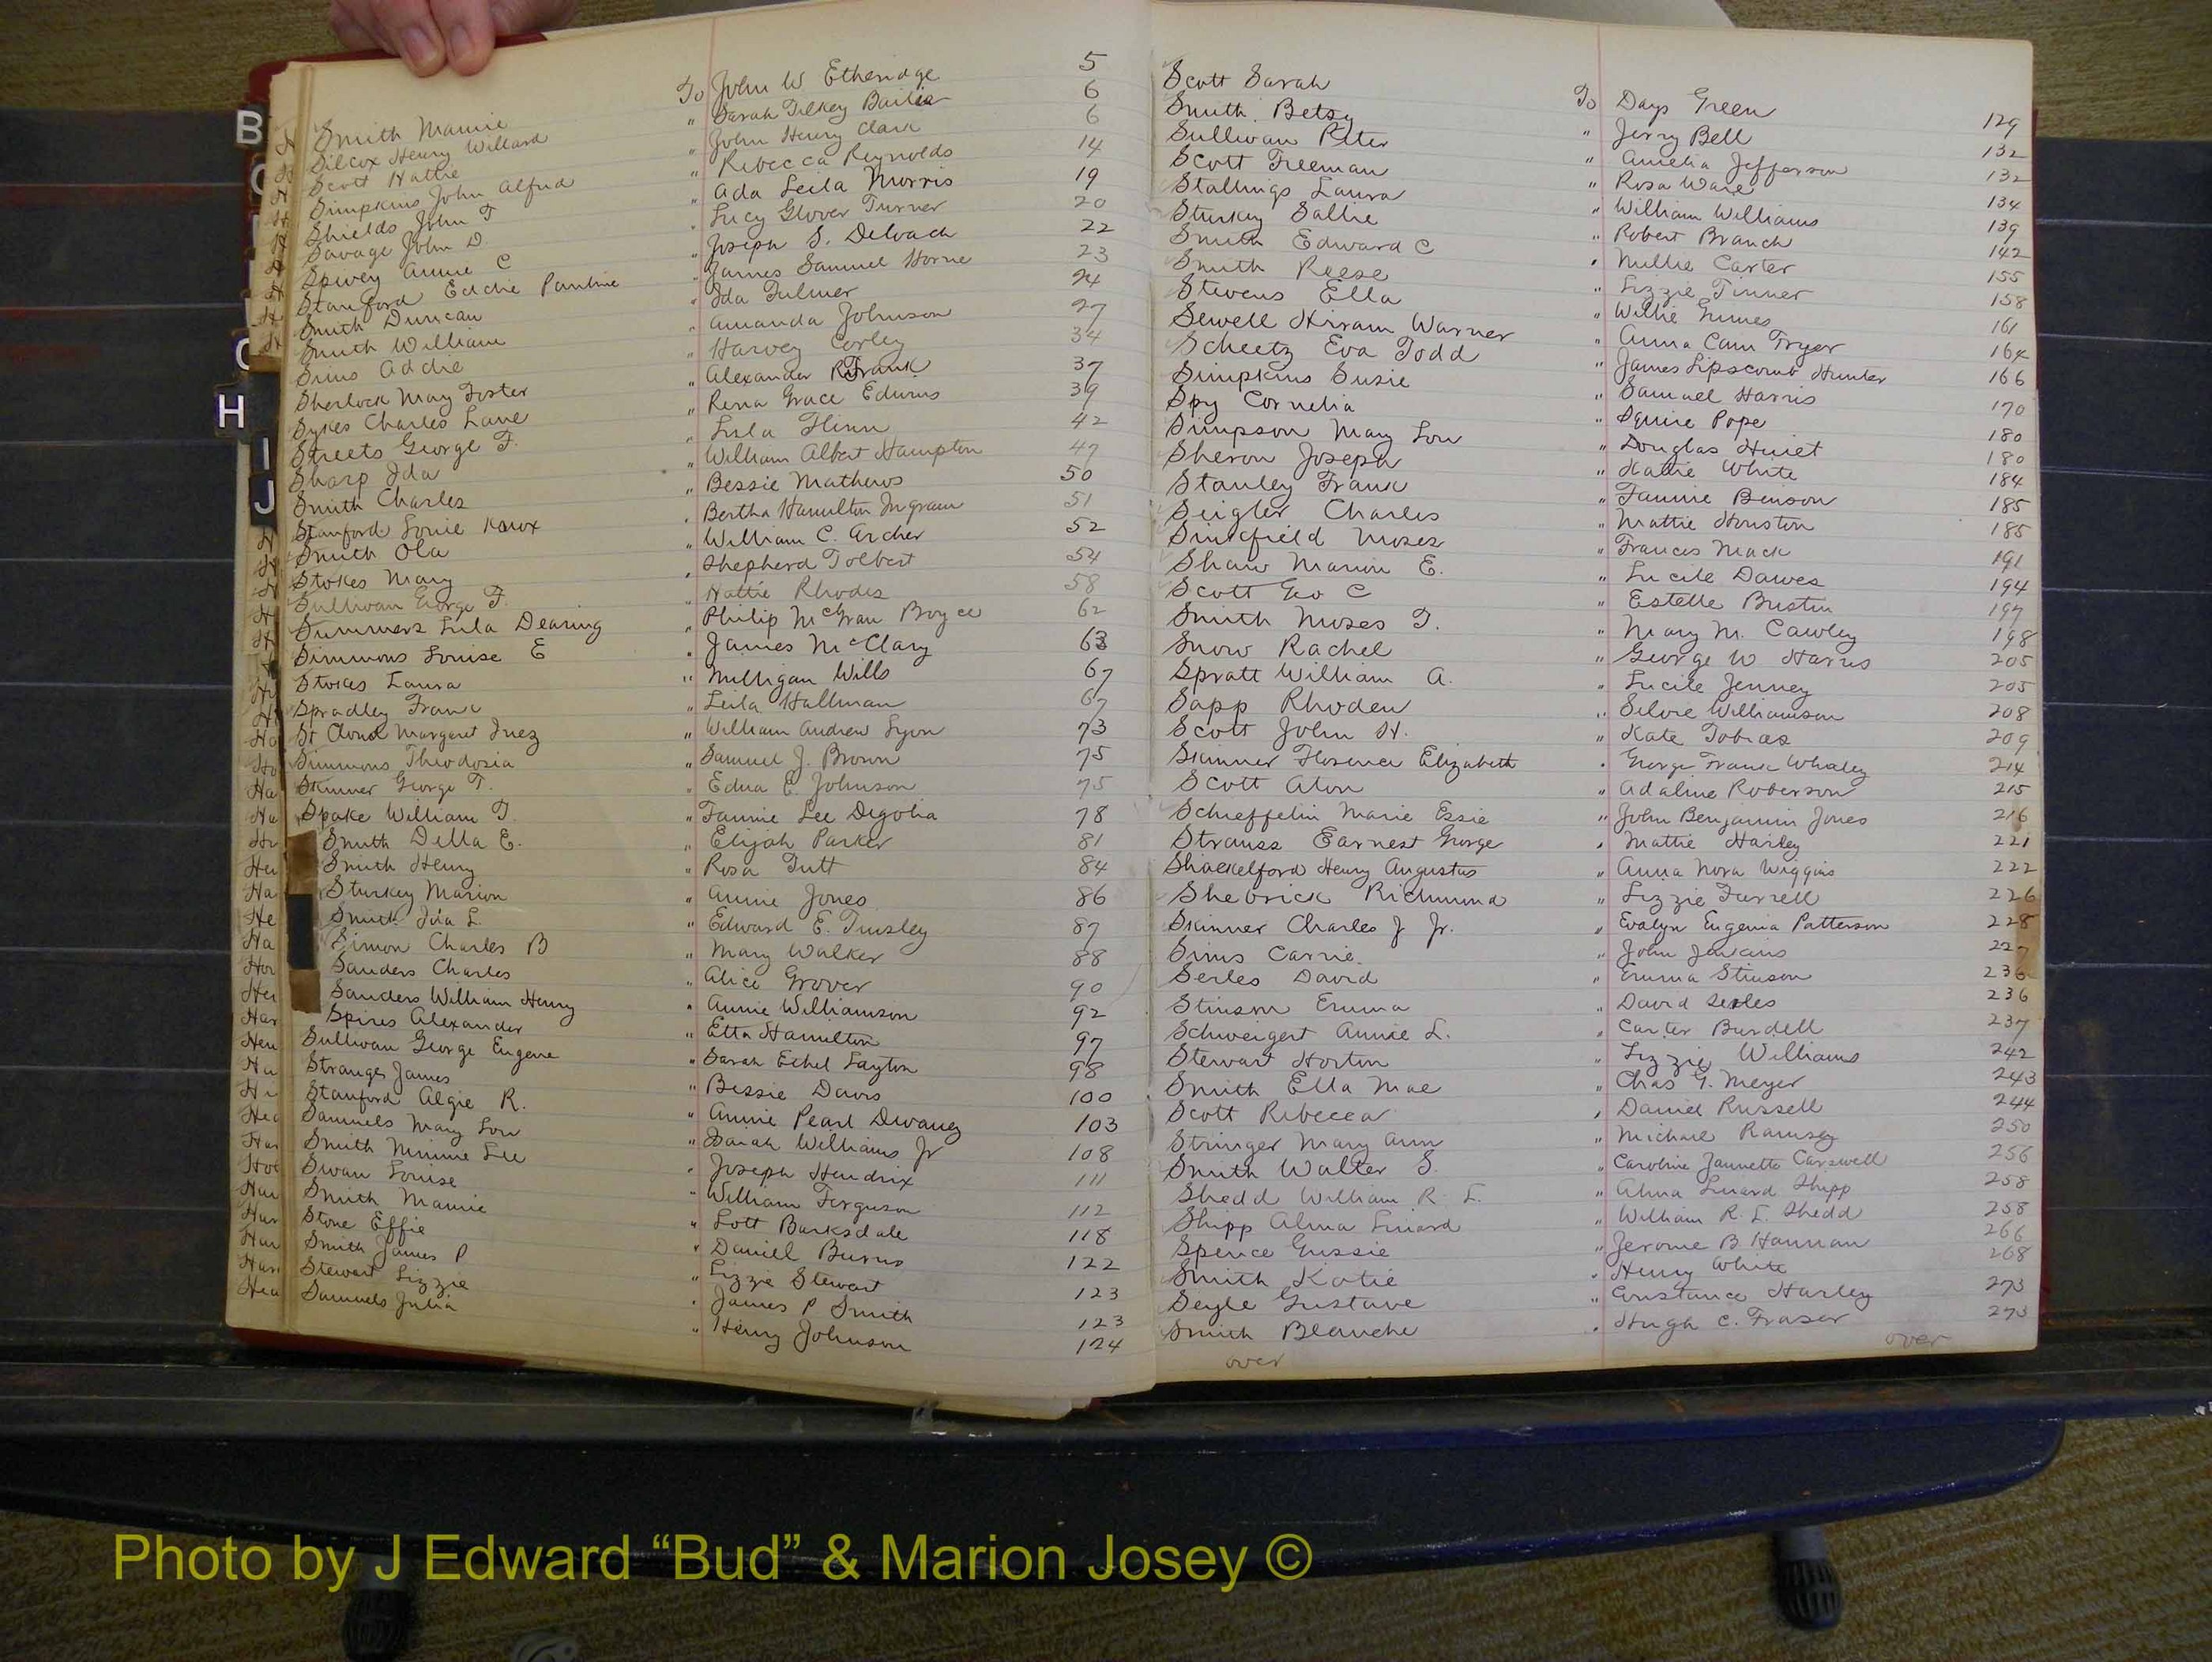 Smith Mamie To John W Etheridge 5
Silcox Henry Willard " Sarah Tilkey Bailie 6
Scott Hattie " John Henry Clark 6
Simpkins John Alfred " Rebecca Reynolds 14
Shields John T " Ada Leila Morris 19
Savage John D. " Lucy Glover Turner 20
Spivey Annie C " Joseph S. DeLoach 22
Stanford Eddie Pauline " James Samuel Horne 23
Smith Duncan " Ida Fulmer 24
Smith William " Amanda Johnson 27
Sims Addie " Harvey Corley 34
Sherlock May Foster " Alexander R Frank 37
Sykes Charles Lane " Rena Grace Edwins 39
Streets George F. " Lula Flinn 42
Sharp Ida " William Albert Hampton 47
Smith Charles " Bessie Mathews 50
Stanford Louie Knox " Bertha Hamilton Ingram 51
Smith Ola " William C. Archer 52
Stokes Mary " Shepherd Tolbert 54
Sullivan George F. " Hattie Rhodes 58
Summers Lula Dearing " Philip McGrau Boyce 62
Simmons Louise E " James McClary 63
Stokes Laura " Milligan Wills 67
Spradley Frank " Leila Hallman 67
St Cloud Margaret Inez " William Andrew Lyon 73
Simmons Theodosia " Samuel J. Brown 75
Skinner George T. " Edna E. Johnson 75
Spake William T. " Fannie Lee Digolia 78
Smith Della E. " Elijah Parker 81
Smith Henry " Rosa Tutt 84
Sturkey Marion " Annie Jones 86
Smith Ida L. " Edward E. Tinsley 87
Simon Charles B " Mary Walker 88
Sanders Charles " Alice Grover 90
Sanders William Henry " Annie Williamson 92
Spires Alexander " Etta Hamilton 97
Sullivan George Eugene " Sarah Ethel Layton 98
Stranges James " Bessie Davis 100
Stanford Algie R. " Annie Pearl Dwang 103
Samuels Mary Lou " Isaiah Williams Jr 108
Smith Minnie Lee " Joseph Hendrix 111
Swan Louise " William Ferguson 112
Smith Mamie " Lott Barksdale 118
Stone Effie " Daniel Burns 122
Smith James P " Lizzie Stewart 123
Stewart Lizzie " James P Smith 123
Samuels Julia " Henry Johnson 124
Scott Sarah To Days Green 129
Smith Betsy " Jerry Bell 132
Sullivan Peter " Amelia Jefferson 132
Scott Freeman " Rosa Ware 134
Stallings Laura " William Williams 139
Sturkey Sallie " Robert Branch 142
Smith Edward C " Millie Carter 155
Smith Reese " Lizzie Tinner 158
Stevens Ella " Willie Grimes 161
Sewell Hiram Warner " Anna Cam Tryor 164
Scheetz Eva Todd " James Lipscomb Hunter 166
Simpkins Susie " Samuel Harris 170
Spy Cornelia " Squire Pope 180
Simpson Mary Lou " Douglas Huiet 180
Sheron Joseph " Hattie White 184
Stanley Frank " Fannie Benson 185
Seigler Charles " Mattie Houston 185
Sinkfield Moses " Frances Mack 191
Shaw Marion E. " Lucile Dawes 194
Scott Geo C " Estelle Bustin 197
Smith Moses T. " Mary M. Cawley 198
Snow Rachel " George W Harris 205
Spratt William A. " Lucile Jenney 205
Sapp Rhoden " Silvie Williamson 208
Scott John H. " Kate Tobias 209
Skinner Florence Elizabeth " George Frank Whaley 214
Scott Alon " Adaline Roberson 215
Schieffelin Marie Essie " John Benjamin Jones 216
Strauss Earnest George " Mattie Harley 221
Shackelford Henry Augustus " Anna Nora Wiggins 222
Shebrick Richmond " Lizzie Farrell 226
Skinner Charles J Jr. " Evalyn Eugenia Patterson 228
Sims Carrie " John Jenkins 227
Serles David " Emma Stinson 236
Stinson Emma " David Serles 236
Schweigert Annie L. " Carter Burdell 237
Stewart Horton " Lizzie Williams 242
Smith Ella Mae " Chas G. Meyer 243
Scott Rebecca " Daniel Russell 244
Stringer Mary Ann " Michael Ramsey 250
Smith Walter S. " Caroline Jannette Carswell 256
Shedd William R. L. " Alma Linard Shipp 258
Shipp Alma Linard " William R. L. Shedd 258
Spence Gussie " Jerome B Hannan 266
Smith Katie " Henry White 268
Seyle Gustave " Constance Harley 273
Smith Blanche " Hugh C. Fraser 273
over over
B
C
H
I
J
Photo by J Edward “Bud” & Marion Josey ©